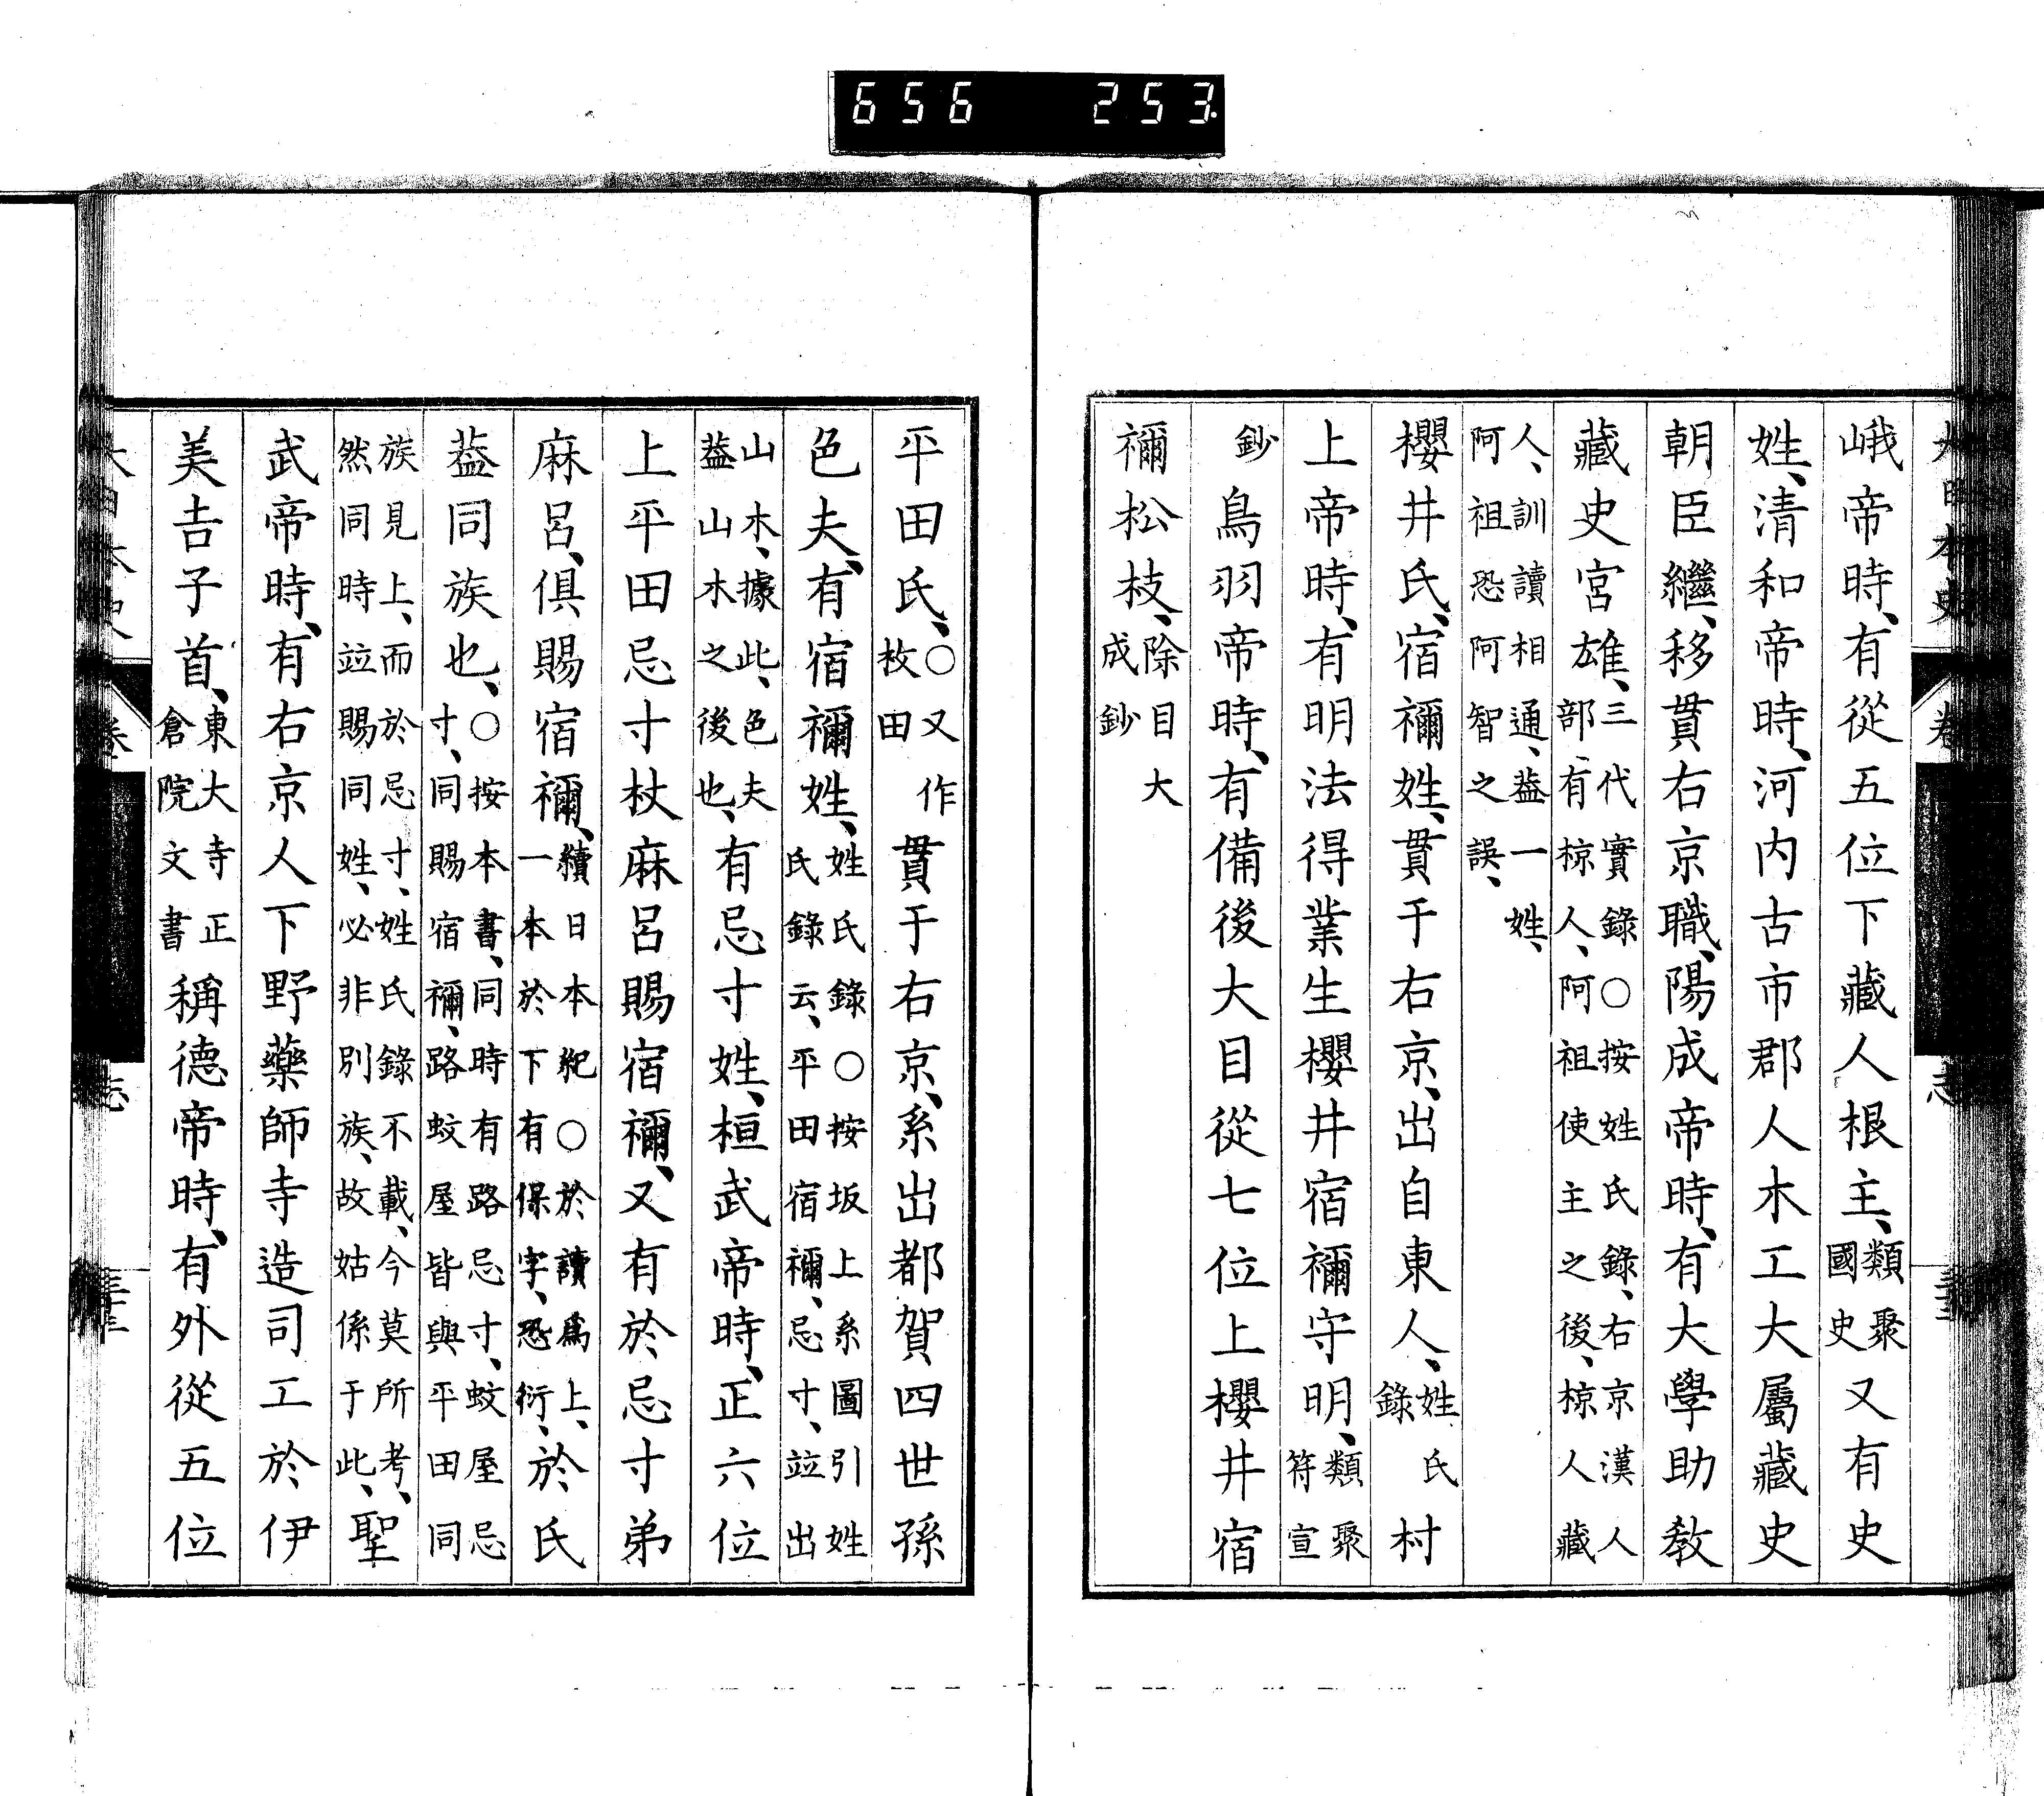 656 253
峨帝時、有從五位下藏人根主、類聚國史又有史
姓、清和帝時、河内古市郡人木工大屬藏史
朝臣繼、移貫右京職、陽成帝時、有大學助教
藏史宮雄、三代實錄○按姓氏錄、右京漢人部有椋人、阿祖使主之後、椋人藏
人、訓讀相通、蓋一姓、阿祖恐阿智之誤、
櫻井氏、宿禰姓、貫于右京、出自東人、姓氏錄村
上帝時、有明法得業生櫻井宿禰守明、類聚符宣
鈔鳥羽帝時、有備後大目從七位上櫻井宿
禰松枝、除目大成鈔
平田氏、○又作枚田貫于右京、系出都賀四世孫
色夫、有宿禰姓、姓氏錄○按坂上系圖引姓氏錄云、平田宿禰、忌寸、竝出
山木、據此、色夫蓋山木之後也、有忌寸姓、桓武帝時、正六位
上平田忌寸杖麻呂賜宿禰、又有於忌寸弟
麻呂、俱賜宿禰、續日本紀○於讀爲上、一本於下有保字、恐衍、於氏
蓋同族也、○按本書、同時有路忌寸、蚊屋忌寸、同賜宿禰、路蚊屋皆與平田同
族見上、而於忌寸、姓氏錄不載、今莫所考、然同時竝賜同姓、必非別族、故姑係于此、聖
武帝時、有右京人下野藥師寺造司工於伊
美吉子首、東大寺正倉院文書稱德帝時、有外從五位